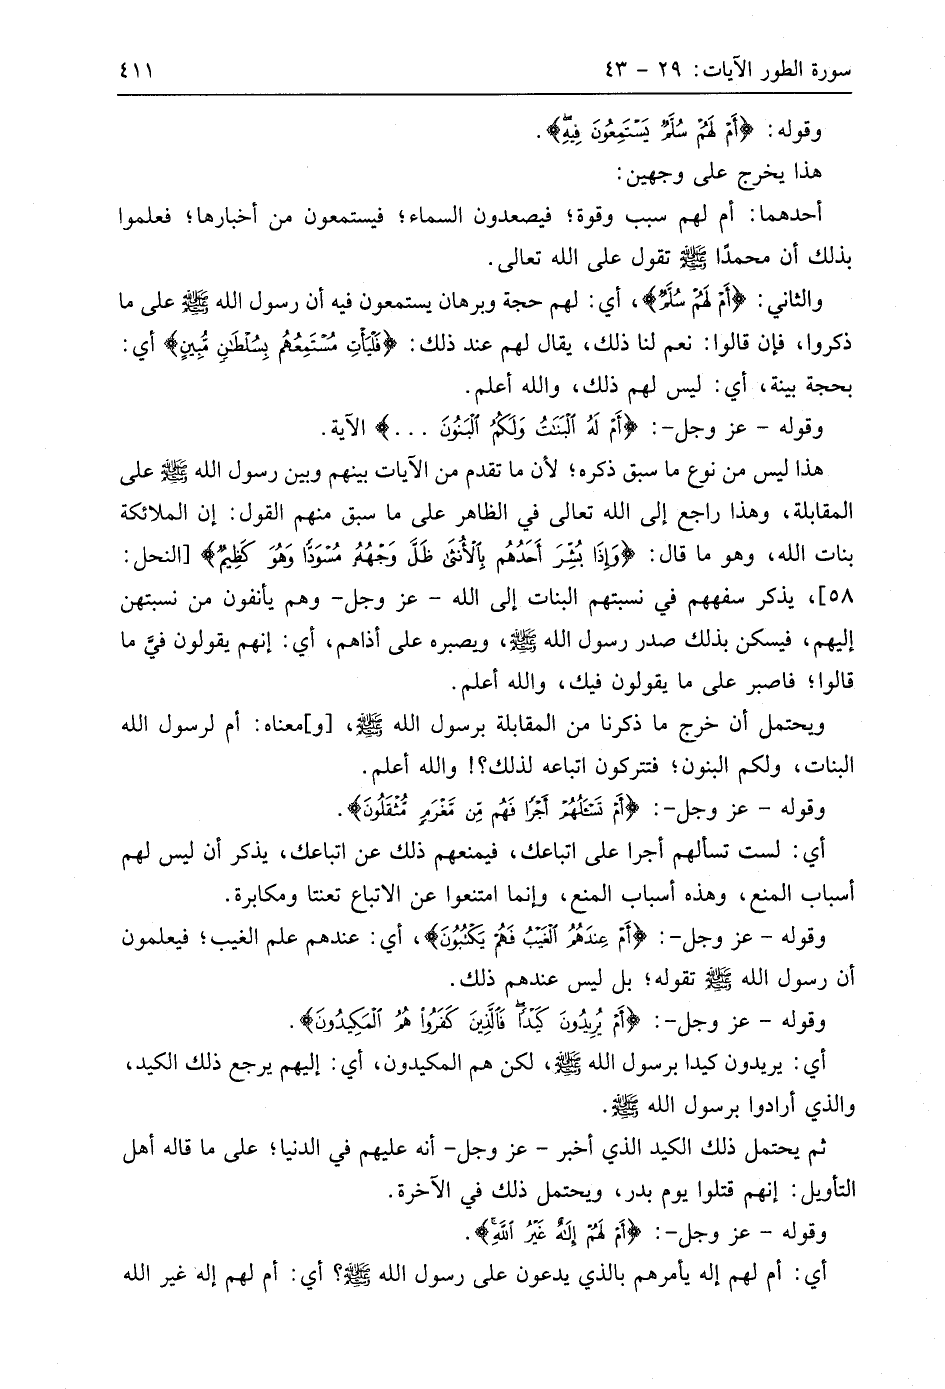 سورة الطور الآيات: ٢٩ - ٤٣ ٤١١
وقوله: ﴿أَمْ لَهُمْ سُلَّمٌ يَسْتَمِعُونَ فِيهِ﴾.
هذا يخرج على وجهين:
أحدهما: أم لهم سبب وقوة؛ فيصعدون السماء؛ فيستمعون من أخبارها؛ فعلموا
بذلك أن محمدًا ﷺ تقول على الله تعالى.
والثاني: ﴿أَمْ لَهُمْ سُلَّمٌ﴾، أي: لهم حجة وبرهان يستمعون فيه أن رسول الله ﷺ على ما
ذكروا، فإن قالوا: نعم لنا ذلك، يقال لهم عند ذلك: ﴿فَلْيَأْتِ مُسْتَمِعُهُم بِسُلْطَٰنٍ مُّبِينٍ﴾ أي:
بحجة بينة، أي: ليس لهم ذلك، والله أعلم.
وقوله - عز وجل-: ﴿أَمْ لَهُ ٱلْبَنَٰتُ وَلَكُمُ ٱلْبَنُونَ ...﴾ الآية.
هذا ليس من نوع ما سبق ذكره؛ لأن ما تقدم من الآيات بينهم وبين رسول الله ﷺ على
المقابلة، وهذا راجع إلى الله تعالى في الظاهر على ما سبق منهم القول: إن الملائكة
بنات الله، وهو ما قال: ﴿وَإِذَا بُشِّرَ أَحَدُهُم بِٱلْأُنثَىٰ ظَلَّ وَجْهُهُ مُسْوَدًّا وَهُوَ كَظِيمٌ﴾ [النحل:
٥٨]، يذكر سفههم في نسبتهم البنات إلى الله - عز وجل- وهم يأنفون من نسبتهن
إليهم، فيسكن بذلك صدر رسول الله ﷺ، ويصبره على أذاهم، أي: إنهم يقولون فيَّ ما
قالوا؛ فاصبر على ما يقولون فيك، والله أعلم.
ويحتمل أن خرج ما ذكرنا من المقابلة برسول الله ﷺ، [و]معناه: أم لرسول الله
البنات، ولكم البنون؛ فتتركون اتباعه لذلك؟! والله أعلم.
وقوله - عز وجل-: ﴿أَمْ تَسْـَٔلُهُمْ أَجْرًا فَهُم مِّن مَّغْرَمٍ مُّثْقَلُونَ﴾.
أي: لست تسألهم أجرا على اتباعك، فيمنعهم ذلك عن اتباعك، يذكر أن ليس لهم
أسباب المنع، وهذه أسباب المنع، وإنما امتنعوا عن الاتباع تعنتا ومكابرة.
وقوله - عز وجل-: ﴿أَمْ عِندَهُمُ ٱلْغَيْبُ فَهُمْ يَكْتُبُونَ﴾، أي: عندهم علم الغيب؛ فيعلمون
أن رسول الله ﷺ تقوله؛ بل ليس عندهم ذلك.
وقوله - عز وجل-: ﴿أَمْ يُرِيدُونَ كَيْدًا فَٱلَّذِينَ كَفَرُوا۟ هُمُ ٱلْمَكِيدُونَ﴾.
أي: يريدون كيدا برسول الله ﷺ، لكن هم المكيدون، أي: إليهم يرجع ذلك الكيد،
والذي أرادوا برسول الله ﷺ.
ثم يحتمل ذلك الكيد الذي أخبر - عز وجل- أنه عليهم في الدنيا؛ على ما قاله أهل
التأويل: إنهم قتلوا يوم بدر، ويحتمل ذلك في الآخرة.
وقوله - عز وجل-: ﴿أَمْ لَهُمْ إِلَٰهٌ غَيْرُ ٱللَّهِ﴾.
أي: أم لهم إله يأمرهم بالذي يدعون على رسول الله ﷺ؟ أي: أم لهم إله غير الله